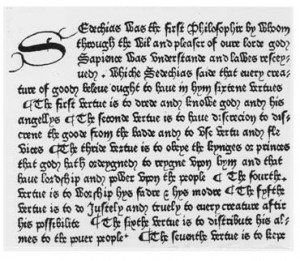 SEdechias was the first Philosophir by whoom
through the wil and pleaser of oure lorde god
Sapience was understande and lawes resceyved
uedy. Whiche Sedechias said that every creature
of good beleue ought to have in hym sixtene vertues
¶ The first vertue is to drede and knowe god and his
angellys ¶ The seconde vertue is to have discrecion to discrene
the goode from the badde and to use vertu and fle
vices ¶ The thride vertue is to obeye the kynges or princes
that god hath ordeyned to reygne upon hym and that
have lordship and power upon the people ¶ The fourthe
vertue is to worship hys fadre & hys modre ¶ The fyfthe
vertue is to do Justely and truely to every creature aftir
his possibilite ¶ The sixthe vertue is to distribute his almes
to the pouer people ¶ The seventhe vertue is to kepe